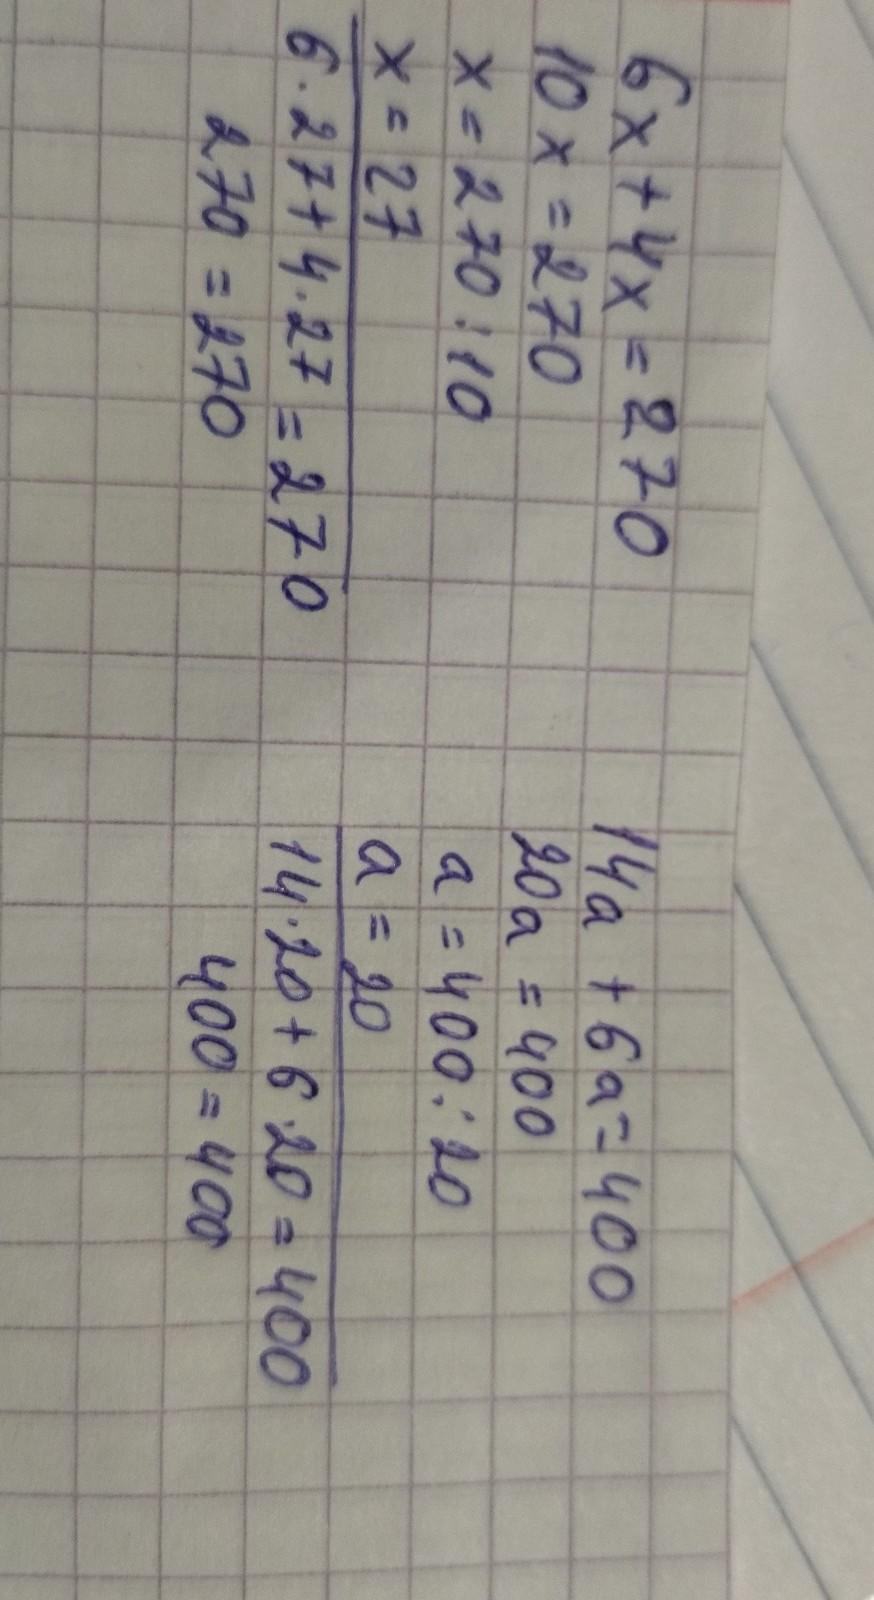 6x+4x=270
10x=270
x=270:10
x=27
6·27+4·27=270
270=270
14a+6a=400
20a=400
a=400:20
a=20
14·20+6·20=400
400=400